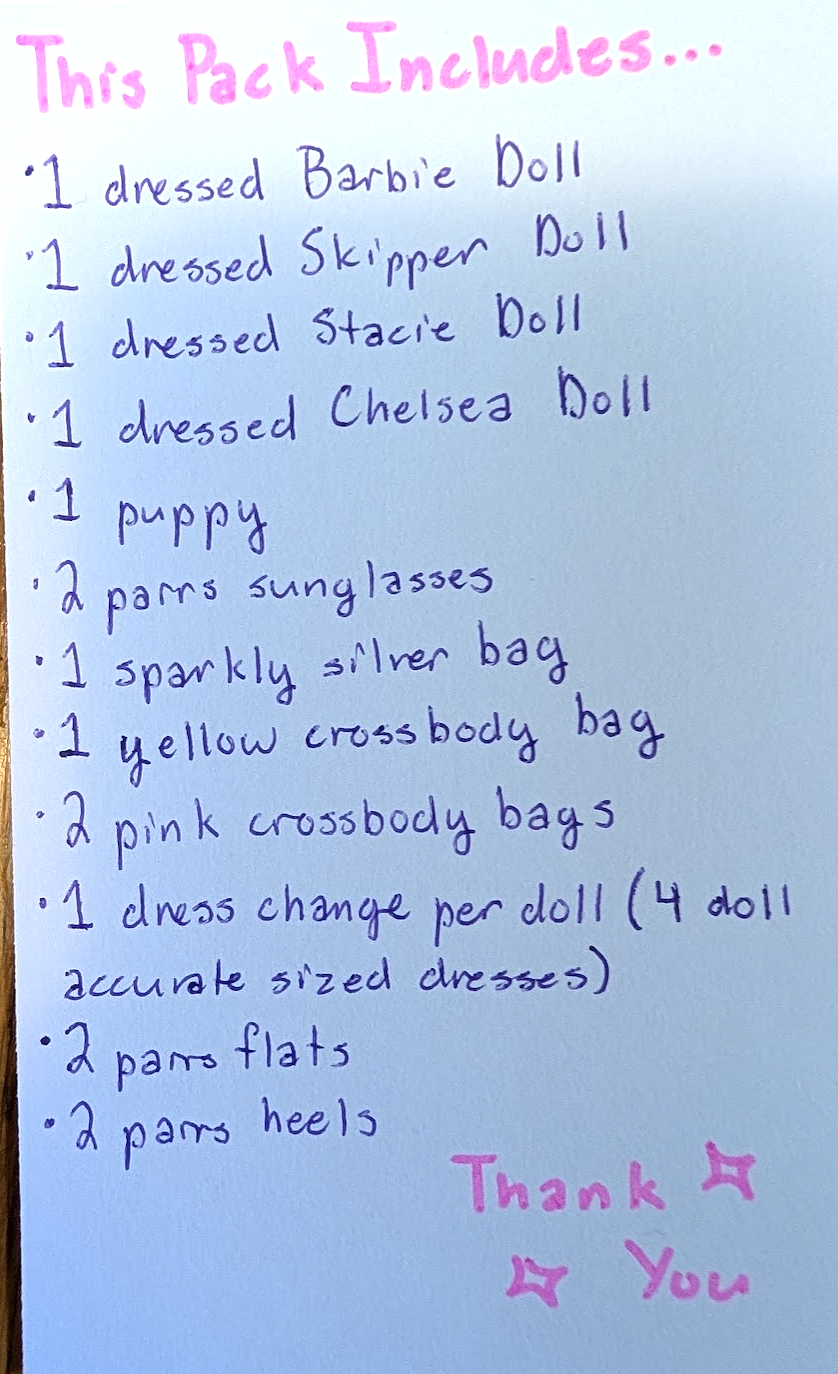 This Pack Includes...
·1 dressed Barbie Doll
·1 dressed Skipper Doll
·1 dressed Stacie Doll
·1 dressed Chelsea Doll
·1 puppy
·2 pairs sunglasses
·1 sparkly silver bag
·1 yellow crossbody bag
·2 pink crossbody bags
·1 dress change per doll (4 doll
accurate sized dresses)
·2 pairs flats
·2 pairs heels
Thank
You